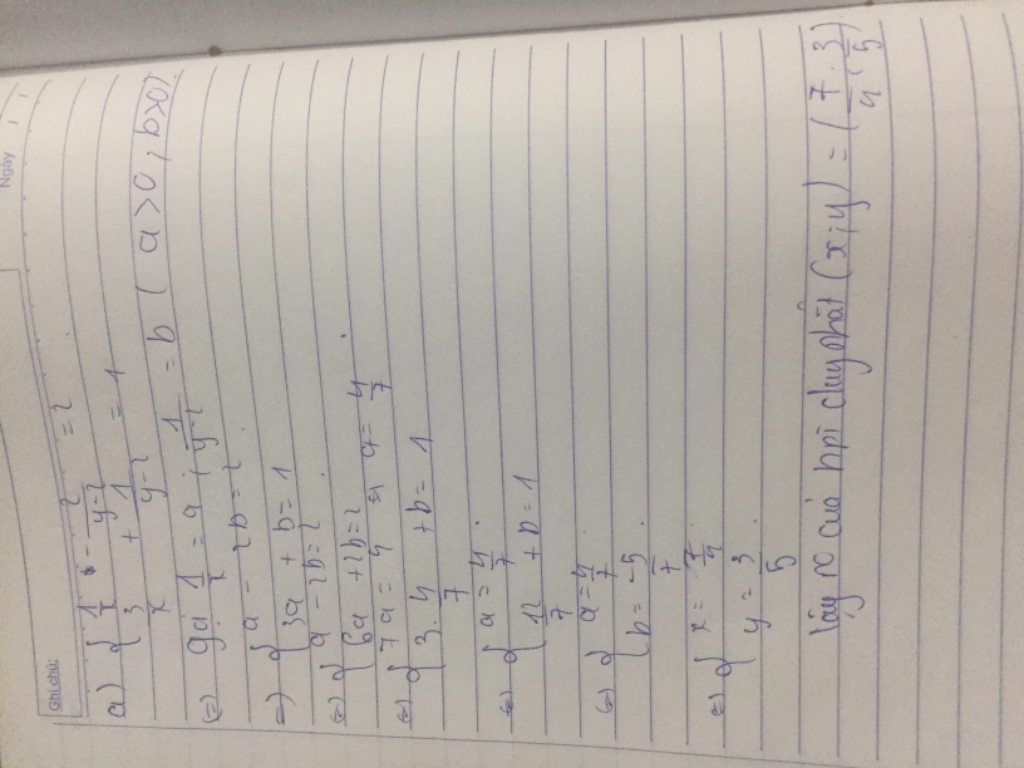 Ghi chú:
Ngày
a) { 1/x - 2/(y-2) = 2
3/x + 1/(y-2) = 1
(=) gọi 1/x = a ; 1/(y-2) = b ( a>0, b>0)
=) { a - 2b = 2
3a + b = 1
(=) { a - 2b = 2
6a + 2b = 2
(=) { 7a = 4 =) a = 4/7
3. 4/7 + b = 1
(=) { a = 4/7
12/7 + b = 1
(=) { a = 4/7
b = -5/7
(=) { x = 7/4
y = 3/5
Vậy no của hpt duy nhất (x;y) = (7/4 ; 3/5)